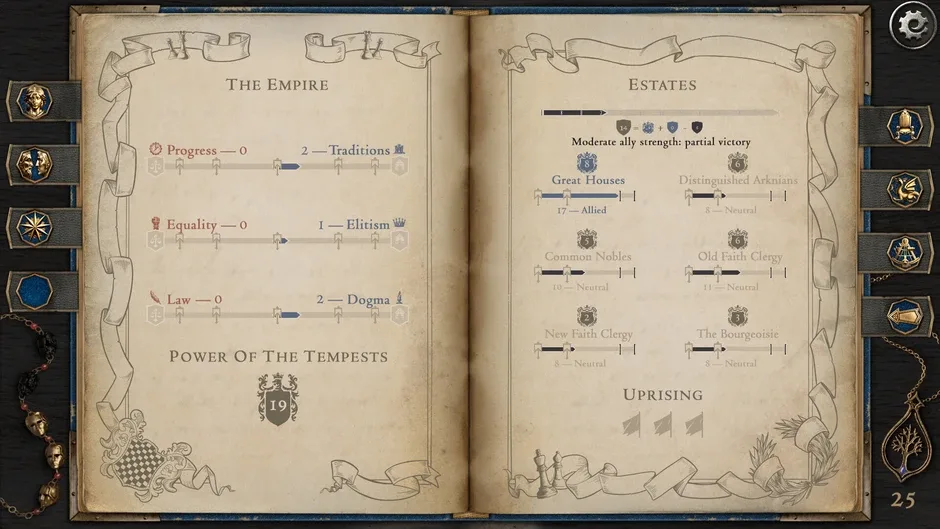 THE EMPIRE
Progress — 0
2 — Traditions
Equality — 0
1 — Elitism
Law — 0
2 — Dogma
POWER OF THE TEMPESTS
19
ESTATES
Moderate ally strength: partial victory
8
6
Great Houses
Distinguished Arknians
17 — Allied
8 — Neutral
5
6
Common Nobles
Old Faith Clergy
10 — Neutral
11 — Neutral
2
3
New Faith Clergy
The Bourgeoisie
8 — Neutral
8 — Neutral
UPRISING
25